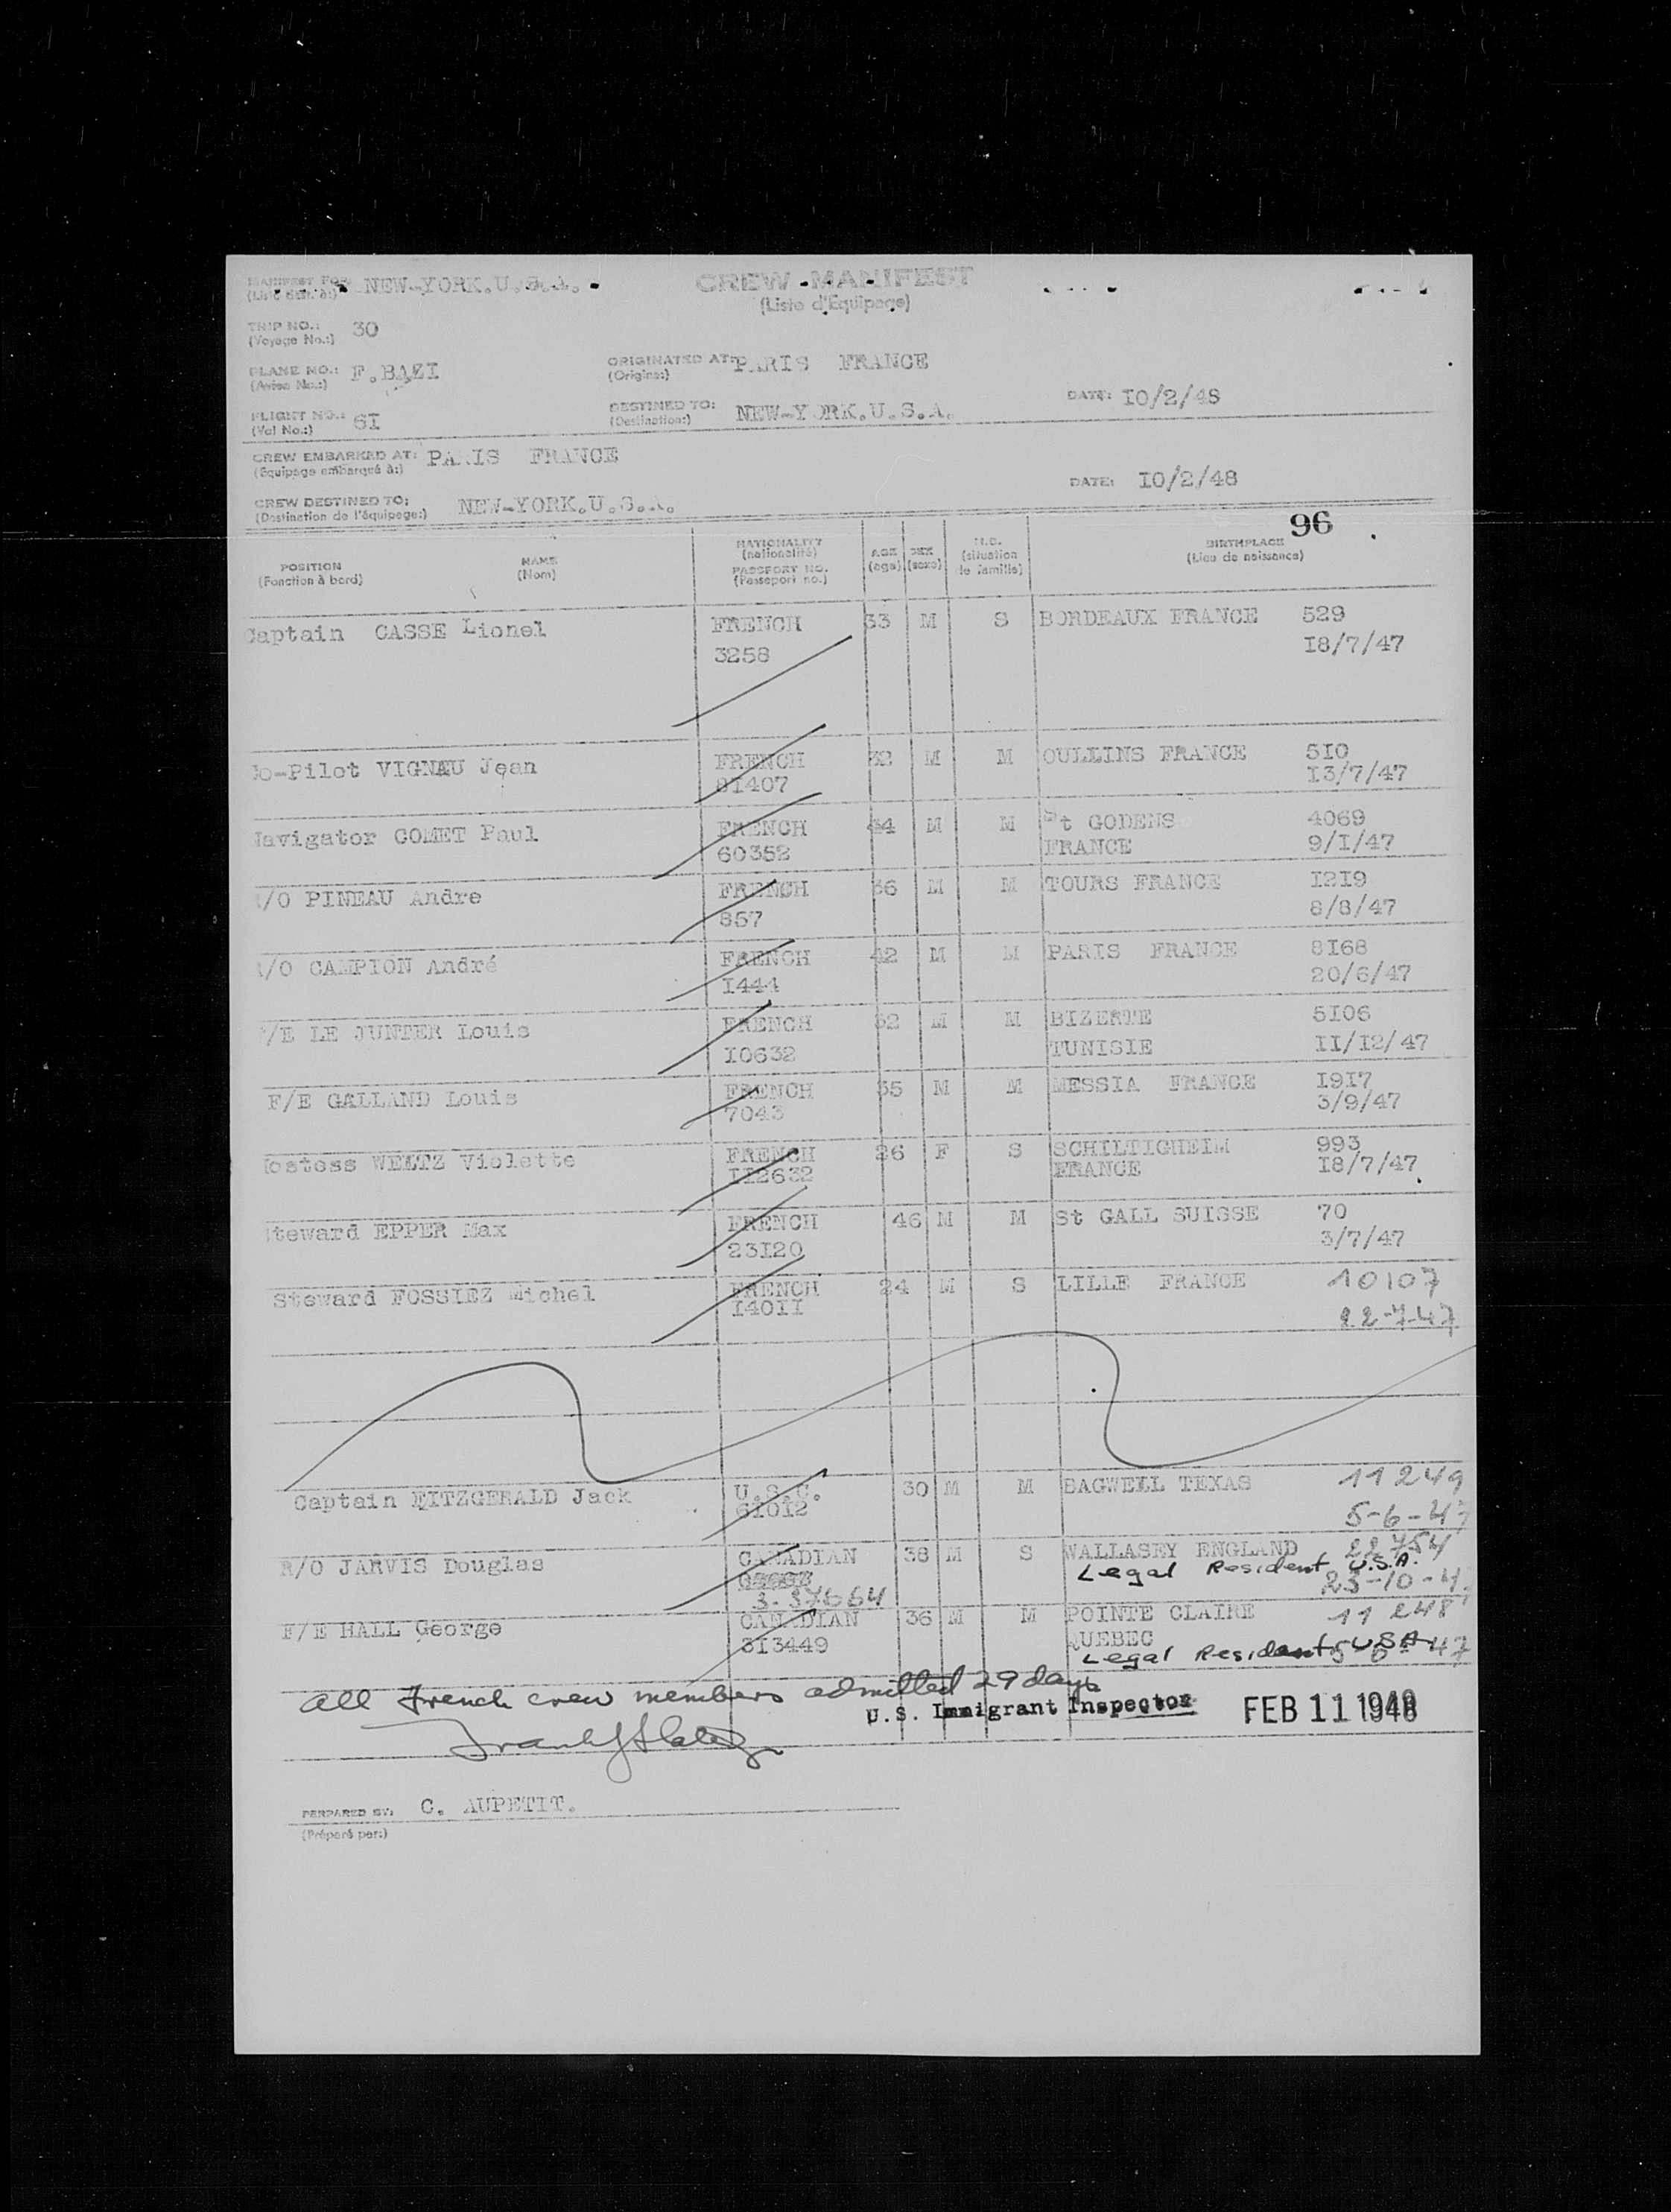 MANIFEST FOR: NEW-YORK.U.S.A.
CREW MANIFEST
(Liste d'Équipage)
TRIP NO.: 30
(Voyage No.:)
PLANE NO.: F.BAZI
(Avion No.:)
ORIGINATED AT: PARIS FRANCE
(Origine:)
FLIGHT NO.: 6I
(Vol No.:)
DESTINED TO: NEW-YORK.U.S.A.
(Destination:)
DATE: I0/2/48
CREW EMBARKED AT: PARIS FRANCE
(Équipage embarqué à:)
DATE: I0/2/48
CREW DESTINED TO: NEW-YORK.U.S.A.
(Destination de l'équipage:)
96
POSITION
(Fonction à bord)
NAME
(Nom)
NATIONALITY
(nationalité)
PASSPORT NO.
(Passeport no.)
AGE
(age)
SEX
(sexe)
(situation
de famille)
BIRTHPLACE
(Lieu de naissance)
Captain CASSE Lionel FRENCH 33 M S BORDEAUX FRANCE 529
3258 I8/7/47
Co-Pilot VIGNAU Jean FRENCH 32 M M OULLINS FRANCE 5I0
8I407 I3/7/47
Navigator COMET Paul FRENCH 34 M M St GODENS 4069
60352 FRANCE 9/I/47
/O PINEAU Andre FRENCH 36 M M TOURS FRANCE I2I9
857 8/8/47
/O CAMPION André FRENCH 42 M M PARIS FRANCE 8I68
I444 20/6/47
/E LE JUNTER Louis FRENCH 32 M M BIZERTE 5I06
I0632 TUNISIE II/I2/47
F/E GALLAND Louis FRENCH 35 M M MESSIA FRANCE I9I7
7043 3/9/47
Hostess WELTZ Violette FRENCH 26 F S SCHILTIGHEIM 993
II2632 FRANCE I8/7/47
Steward EPPER Max FRENCH 46 M M St GALL SUISSE 70
23I20 3/7/47
Steward FOSSIEZ Michel FRENCH 24 M S LILLE FRANCE 10107
I40II 22-7-47
Captain FITZGERALD Jack U.S.C. 30 M M BAGWELL TEXAS 11249
61012 5-6-47
R/O JARVIS Douglas CANADIAN 38 M S WALLASEY ENGLAND 22754
Legal Resident U.S.A.
3-37664 23-10-4
F/E HALL George CANADIAN 36 M M POINTE CLAIRE 11248
313449 QUEBEC
Legal Resident USA 5-6-47
All French crew members admitted 29 days
U.S. Immigrant Inspector FEB 11 1948
PERPARED BY: C. AUPETIT.
(Préparé par:)